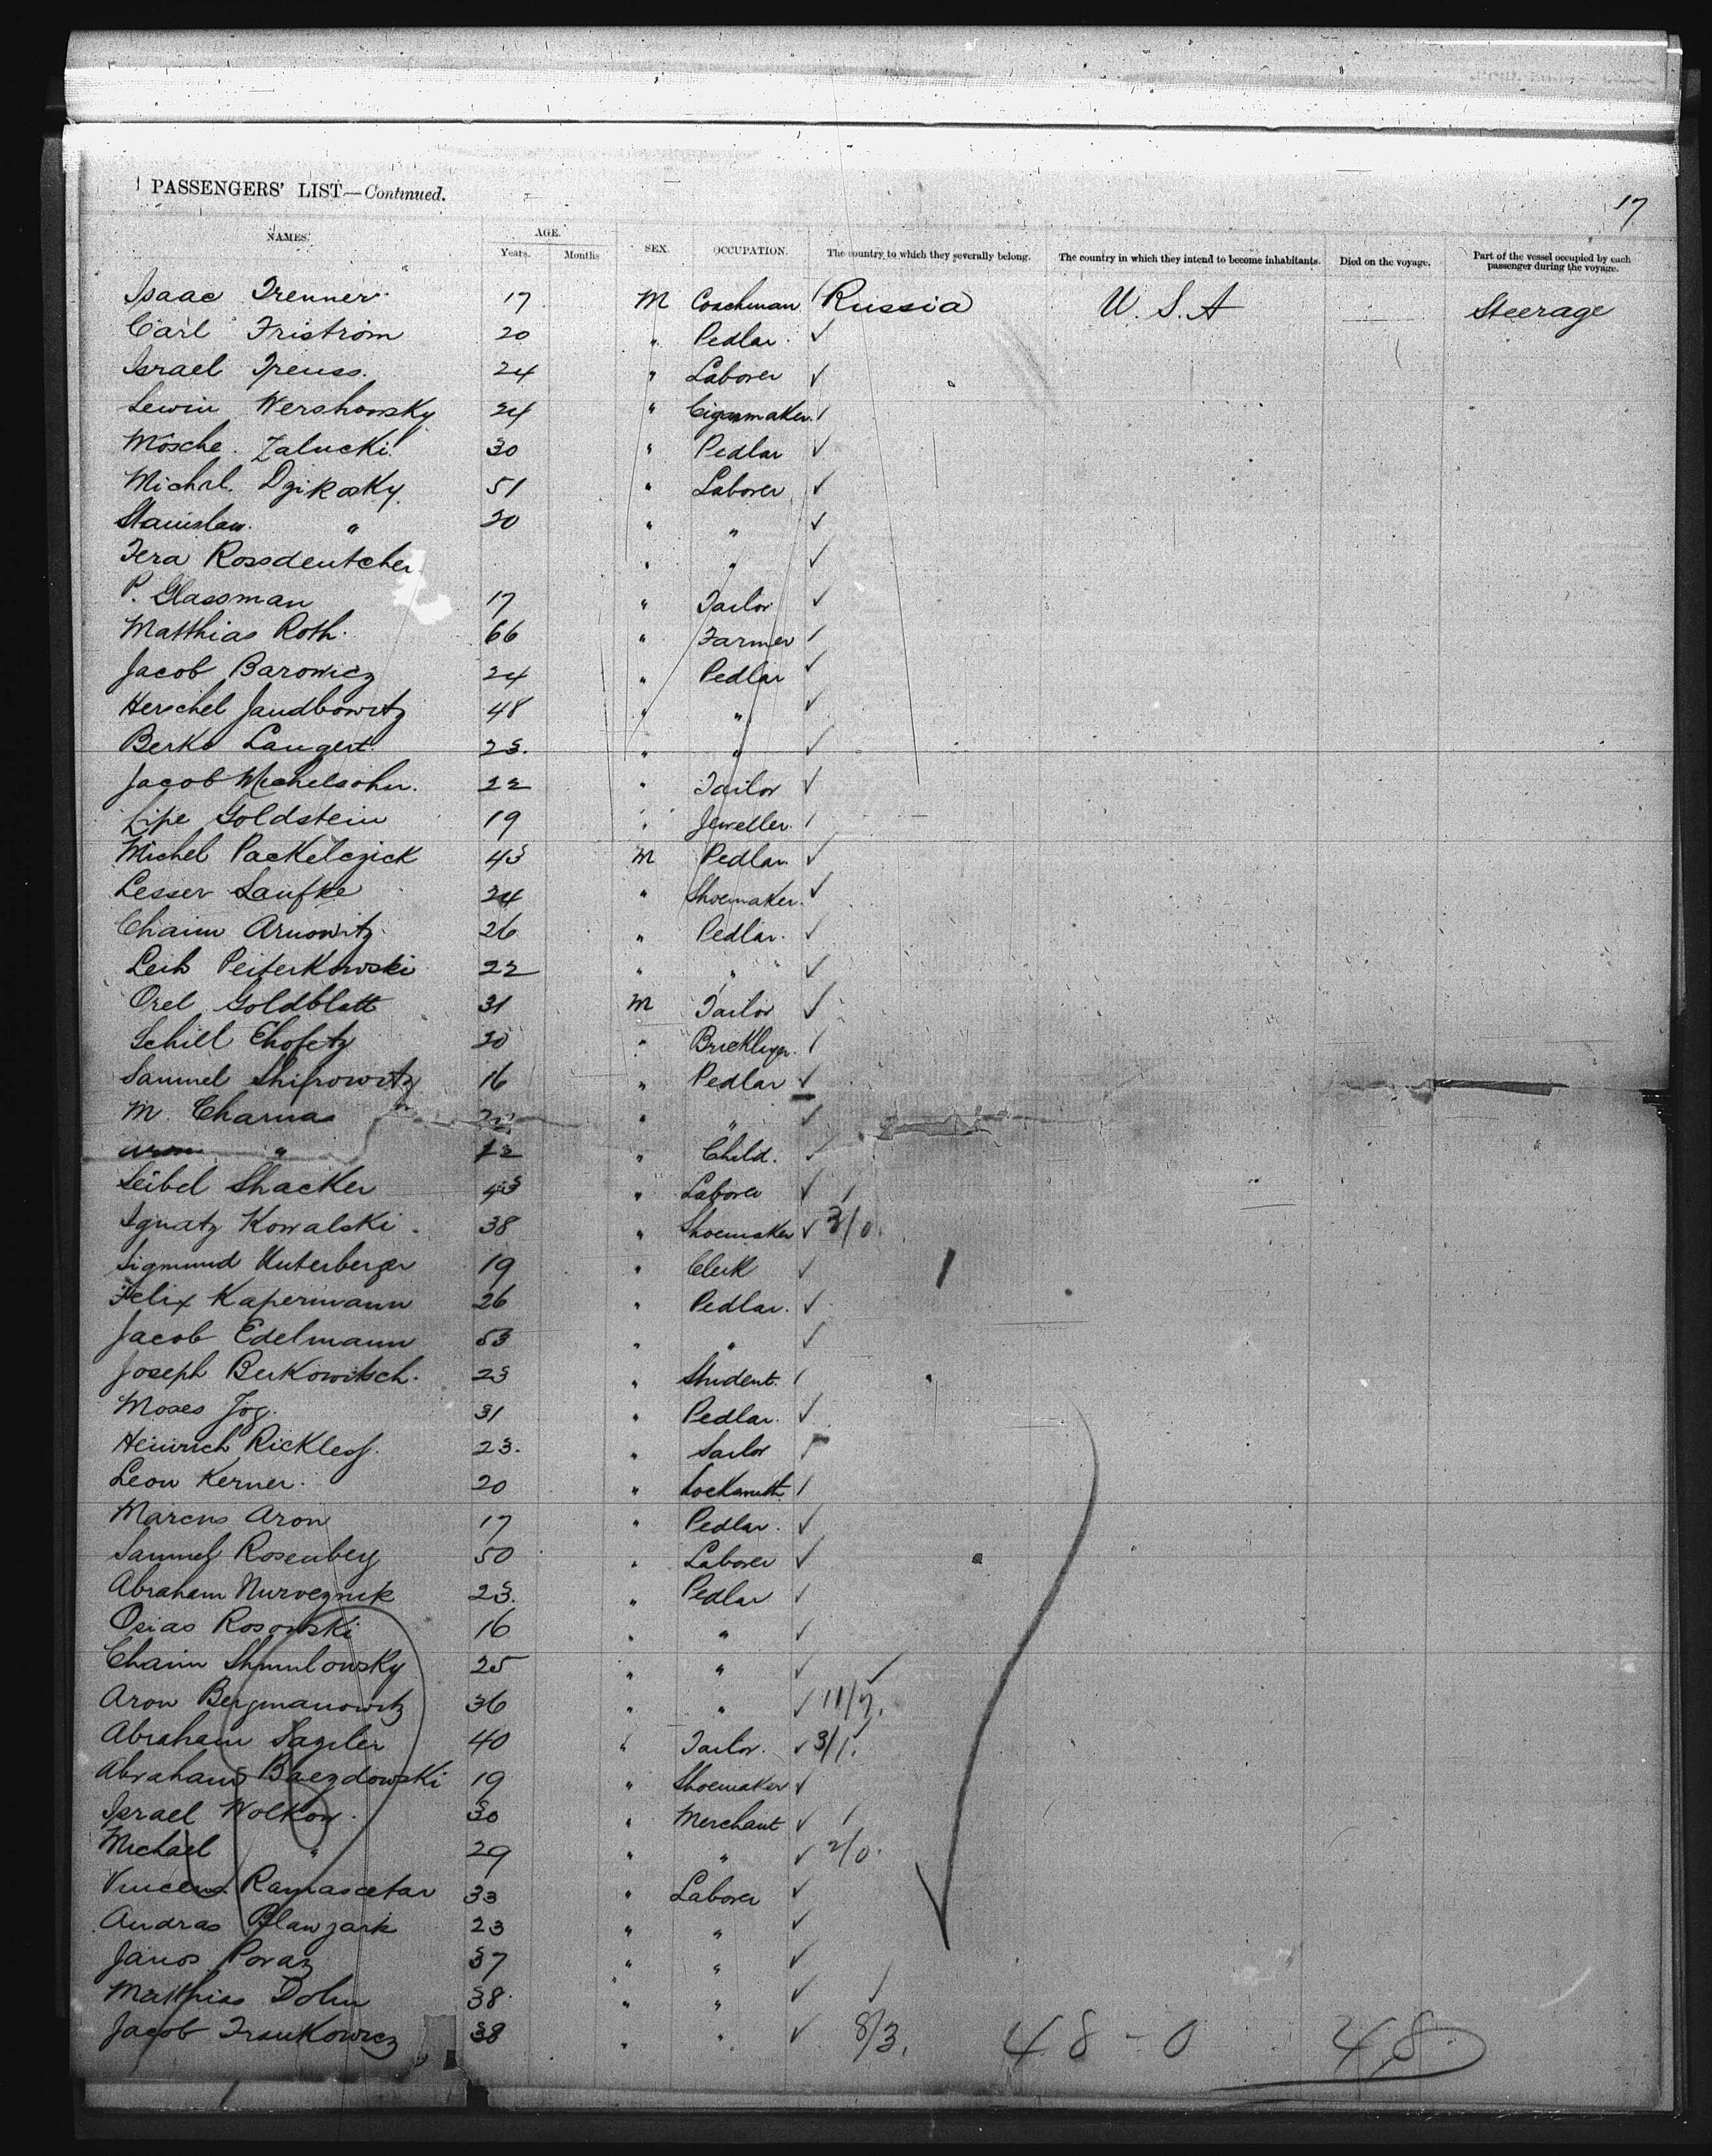 PASSENGERS' LIST—Continued.
17
NAMES. AGE. SEX. OCCUPATION. The country to which they severally belong. The country in which they intend to become inhabitants. Died on the voyage. Part of the vessel occupied by each passenger during the voyage.
Years. Months
Isaac Trenner 17 M Coachman Russia U.S.A Steerage
Carl Friström 20 " Pedlar ✓
Israel 24 " Laborer ✓
Lewin Wershowsky 24 " Cigarmaker
Mosche Zalucki 30 " Pedlar ✓
Michal. Dzikosky 51 " Laborer ✓
Stanislaw " 30 " " ✓
Rossdeutcher " " ✓
P. Glassman 17 " Tailor ✓
Matthias Roth 66 " Farmer
Jacob Barowicz 24 " Pedlar ✓
Herschel Jandbowitz 48 " " ✓
Berko Langert 23. " " ✓
Jacob Michelsohn. 22 " Tailor ✓
Goldstein 19 " Jeweller
Michel Packelczick 43 M Pedlar ✓
Lesser Laufke 24 " Shoemaker. ✓
Chaim Arnowitz 26 " Pedlar ✓
Leib Peiterkowski 22 " " ✓
Orel Goldblatt 31 M Tailor ✓
Schill Chofetz 20 "
Samuel Shifrowitz 16 " Pedlar ✓
M. Charnas " " ✓
Aron " 12 " Child. ✓
Leibel Shacker 43 " Laborer ✓
Ignatz Kowalski 38 " Shoemaker ✓ 3/0.
Sigmund Unterberger 19 " Clerk ✓
Felix Kapermann 26 " Pedlar. ✓
Jacob Edelmann 53 " " ✓
Joseph Berkowitsch 23 " Student.
Moses 31 " Pedlar. ✓
Heinrich Rickless. 23. " Sailor
Leon Kerner 20 " Locksmith
Marcus Aron 17 " Pedlar. ✓
Samuel Rosenberg 50 " Laborer ✓
Abraham Nurveznik 23. " Pedlar ✓
Osias Rosowski 16 " " ✓
Chaim Shmulowsky 25 " " ✓
Aron Bergmanowitz 36 " " ✓ 11/7.
Abraham Sagiler 40 " Tailor. ✓ 3/1.
Abraham Baezdowski 19 " Shoemaker ✓
Israel Wolkow 30 " Merchant ✓
Michael " 29 " " ✓ 2/0.
Ramascetar 33 " Laborer ✓
Andras Blawzark 23 " " ✓
Janos Poraz 37 " " ✓
Matthias Dohn 38 " " ✓
Jacob Trankowicz 38 " " ✓ 8/3. 48 - 0 48